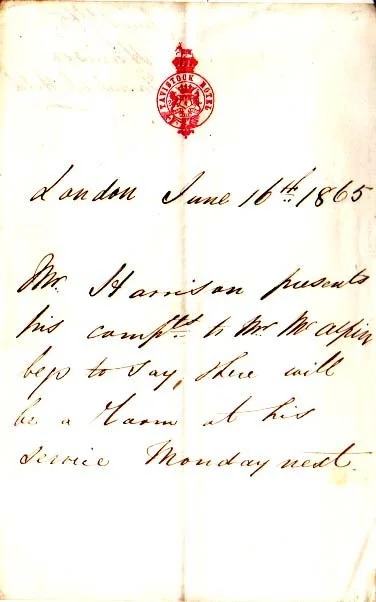 TAVISTOCK HOTEL
London June 16th 1865
Mr. Harrison presents
his compts. to Mr. McAlpin
begs to say, there will
be a Room at his
service Monday next.